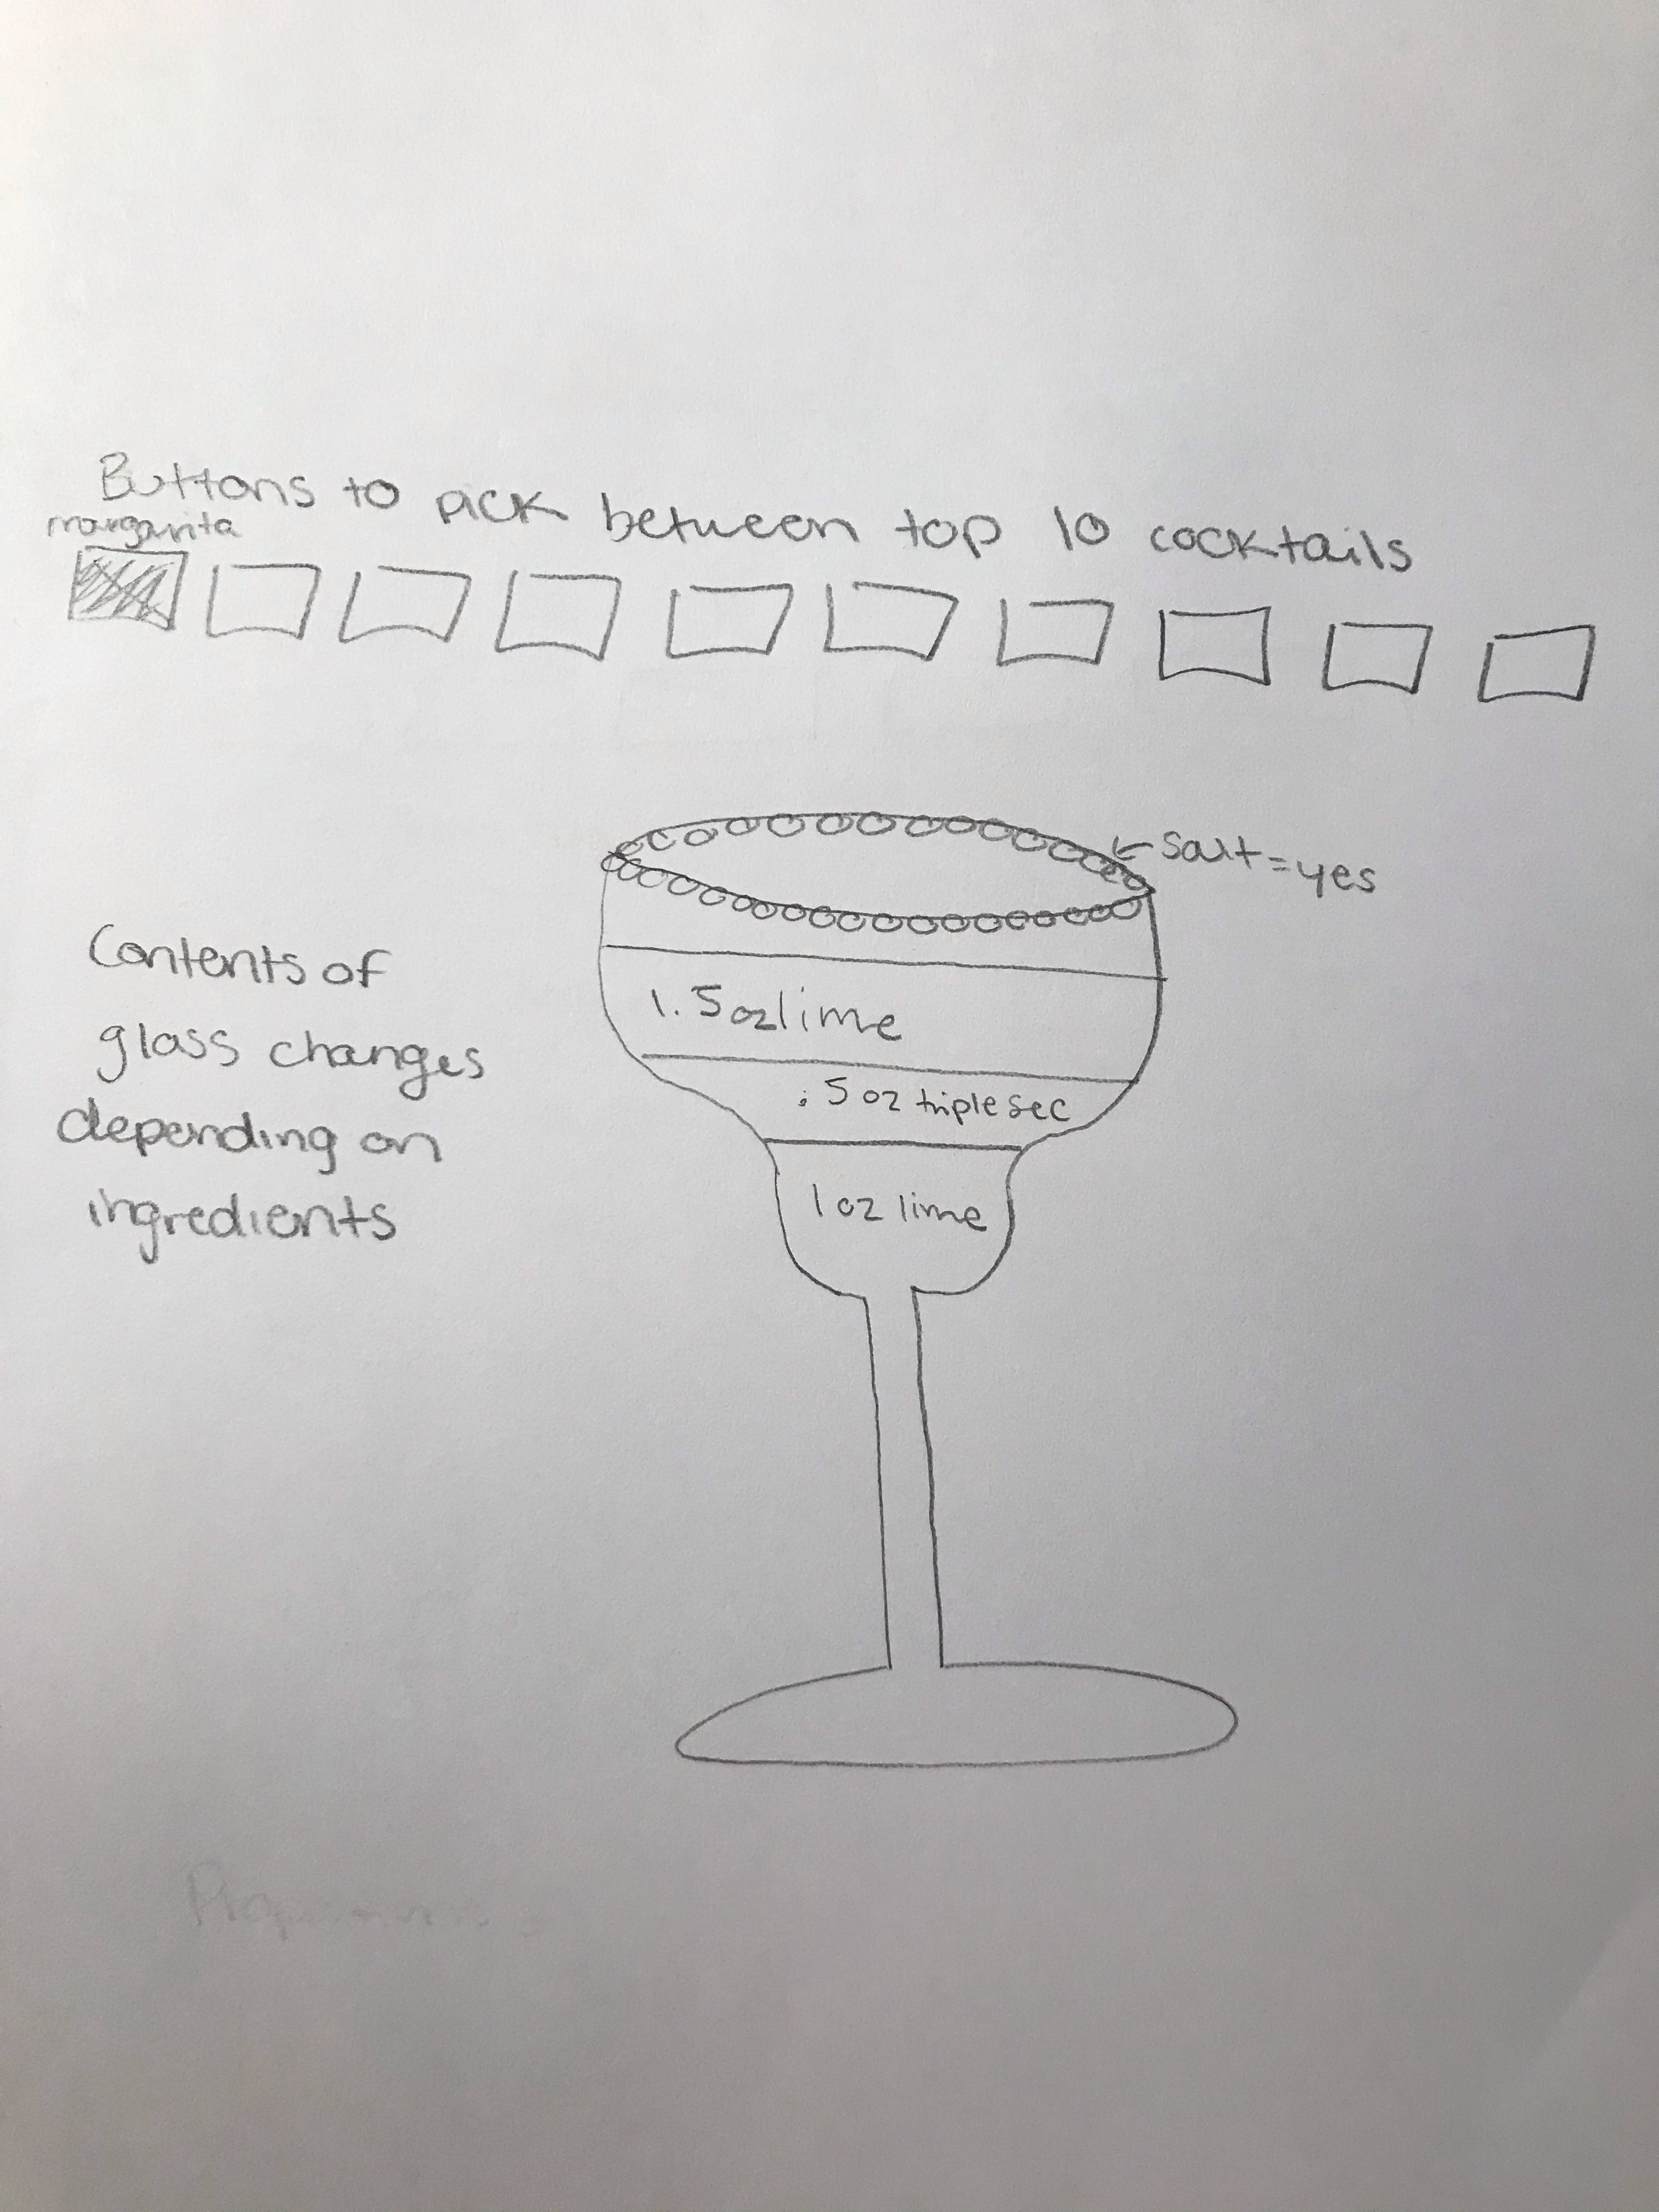 Buttons to pick between top 10 cocktails
margarita
salt = yes
Contents of
glass changes
depending on
ingredients
1.5oz lime
.5 oz triple sec
1 oz lime